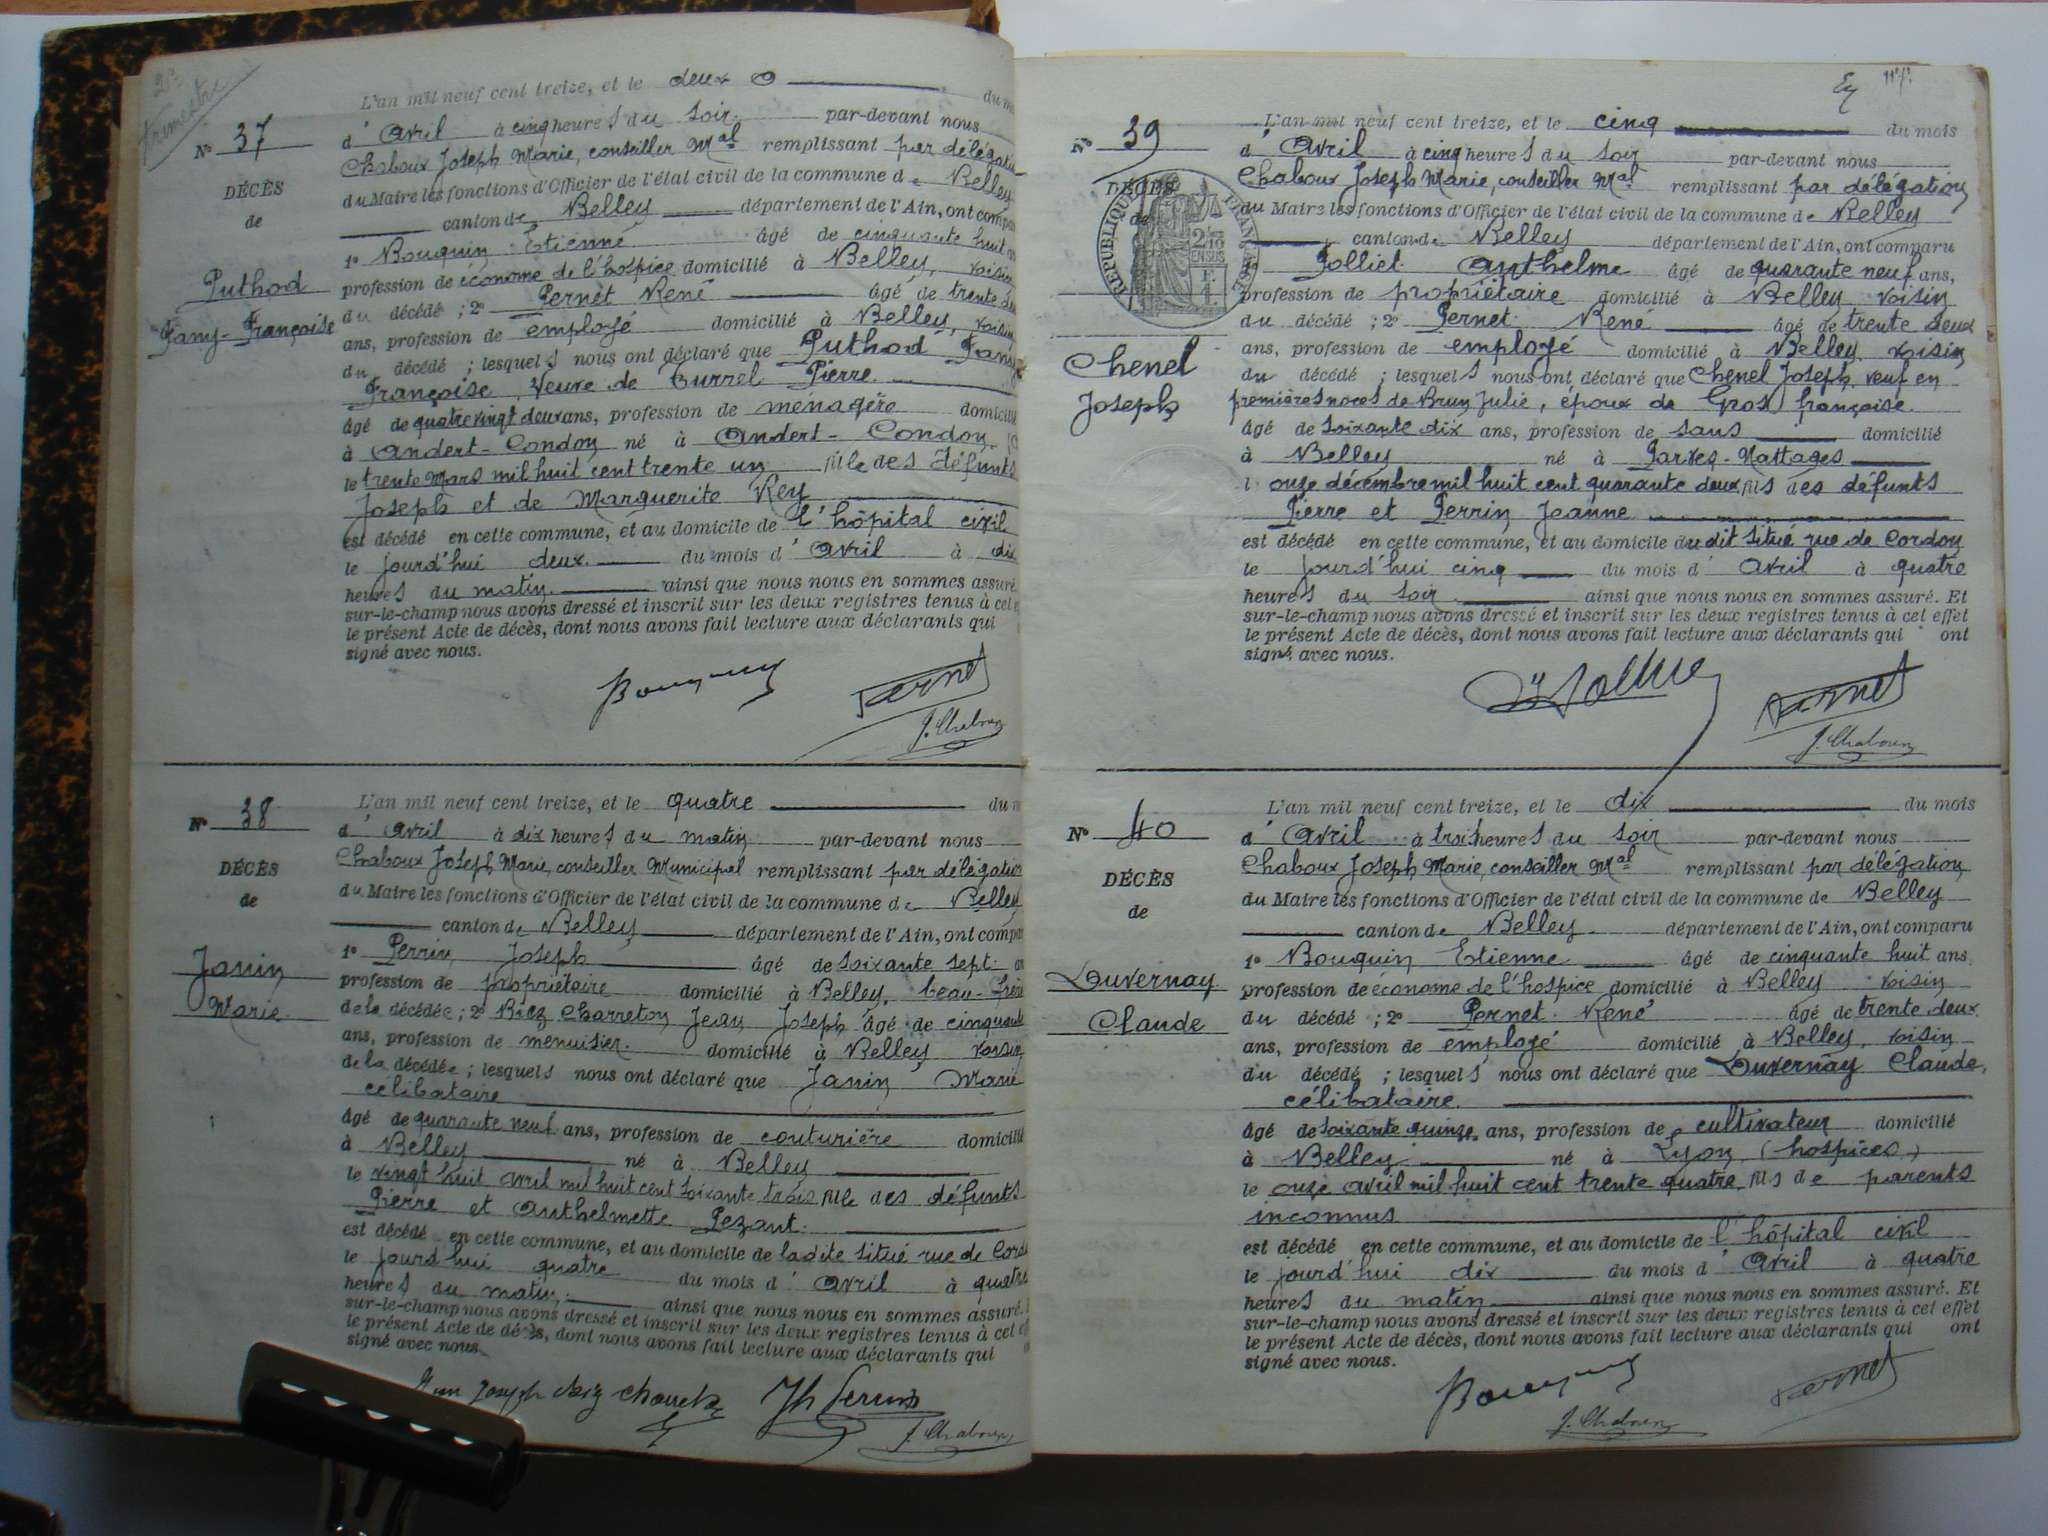 2e
trimestre
L'an mil neuf cent treize, et le deux du m
Nº 37
d' Avril à cinq heures du soir par-devant nous
Chaboux Joseph Marie, conseiller Mal remplissant par délégation
DÉCÈS
du Maire les fonctions d'Officier de l'état civil de la commune de Belley
de
canton de Belley département de l'Ain, ont compa
1º Bouquin Etienne âgé de cinquante huit an
Puthod
profession de économe de l'hospice domicilié à Belley, voisin
Fany-Françoise
du décédé ; 2º Pernet René âgé de trente deu
ans, profession de employé domicilié à Belley, voisin
du décédé ; lesquels nous ont déclaré que Puthod Fany
Françoise, veuve de Turrel Pierre.
âgé de quatre vingt deux ans, profession de ménagère domicilié
à Andert-Condon né à Andert-Condon
le trente Mars mil huit cent trente un fille des défunts
Joseph et de Marguerite Rey
est décédé en cette commune, et au domicile de l'hôpital civil
le jourd'hui deux du mois d' Avril à dix
heures du matin. ainsi que nous nous en sommes assuré
sur-le-champ nous avons dressé et inscrit sur les deux registres tenus à cet e
le présent Acte de décès, dont nous avons fait lecture aux déclarants qui
signé avec nous.
Bouquin Pernet
J. Chaboux
L'an mil neuf cent treize, et le quatre du m
Nº 38
d' Avril à dix heures du matin par-devant nous
Chaboux Joseph Marie, conseiller Municipal remplissant par délégation
DÉCÈS
du Maire les fonctions d'Officier de l'état civil de la commune de Belley
de
canton de Belley département de l'Ain, ont compa
1º Perrin Joseph âgé de soixante sept an
Janin
profession de propriétaire domicilié à Belley, beau-frère
Marie
de la décédée ; 2º Biez Charreton Jean Joseph âgé de cinquante
ans, profession de menuisier. domicilié à Belley voisin
de la décédée ; lesquels nous ont déclaré que Janin Marie
célibataire
âgé de quarante neuf ans, profession de couturière domicilié
à Belley né à Belley
le vingt huit avril mil huit cent soixante trois fille des défunts
Pierre et Anthelmette Pezant.
est décédé en cette commune, et au domicile de ladite situé rue de Cord
le jourd'hui quatre du mois d' Avril à quatre
heures du matin. ainsi que nous nous en sommes assuré.
sur-le-champ nous avons dressé et inscrit sur les deux registres tenus à cet
le présent Acte de décès, dont nous avons fait lecture aux déclarants qui
signé avec nous.
Jh Perrin
J. Chaboux
L'an mil neuf cent treize, et le cinq du mois
Nº 39
d' Avril à cinq heures du soir par-devant nous
Chaboux Joseph Marie, conseiller Mal remplissant par délégation
DÉCÈS
du Maire les fonctions d'Officier de l'état civil de la commune de Belley
de
canton de Belley département de l'Ain, ont comparu
RÉPUBLIQUE FRANÇAISE
2/10 EN SUS
F. 1.
1º Polliet Anthelme âgé de quarante neuf ans,
profession de propriétaire domicilié à Belley voisin
du décédé ; 2º Pernet René âgé de trente deux
Chenel
Joseph
ans, profession de employé domicilié à Belley, voisin
du décédé ; lesquels nous ont déclaré que Chenel Joseph veuf en
premières noces de Brun Julie, époux de Gros françoise.
âgé de soixante dix ans, profession de sans domicilié
à Belley né à Parves-Nattages
l onze décembre mil huit cent quarante deux fils des défunts
Pierre et Perrin Jeanne
est décédé en cette commune, et au domicile dudit situé rue de Cordon
le jourd'hui cinq du mois d' Avril à quatre
heures du soir. ainsi que nous nous en sommes assuré. Et
sur-le-champ nous avons dressé et inscrit sur les deux registres tenus à cet effet
le présent Acte de décès, dont nous avons fait lecture aux déclarants qui ont
signé avec nous.
Pernet
J. Chaboux
L'an mil neuf cent treize, et le dix du mois
Nº 40
d' Avril à trois heures du soir par-devant nous
Chaboux Joseph Marie, conseiller Mal remplissant par délégation
DÉCÈS
du Maire les fonctions d'Officier de l'état civil de la commune de Belley
de
canton de Belley département de l'Ain, ont comparu
1º Bouquin Etienne âgé de cinquante huit ans,
Duvernay
profession de économe de l'hospice domicilié à Belley voisin
Claude
du décédé ; 2º Pernet René âgé de trente deux
ans, profession de employé domicilié à Belley, voisin
du décédé ; lesquels nous ont déclaré que Duvernay Claude,
célibataire.
âgé de soixante quinze ans, profession de cultivateur domicilié
à Belley né à Lyon (hospices)
le onze avril mil huit cent trente quatre fils de parents
inconnus
est décédé en cette commune, et au domicile de l'hôpital civil
le jourd'hui dix du mois d' Avril à quatre
heures du matin ainsi que nous nous en sommes assuré. Et
sur-le-champ nous avons dressé et inscrit sur les deux registres tenus à cet effet
le présent Acte de décès, dont nous avons fait lecture aux déclarants qui ont
signé avec nous.
Bouquin Pernet
J. Chaboux